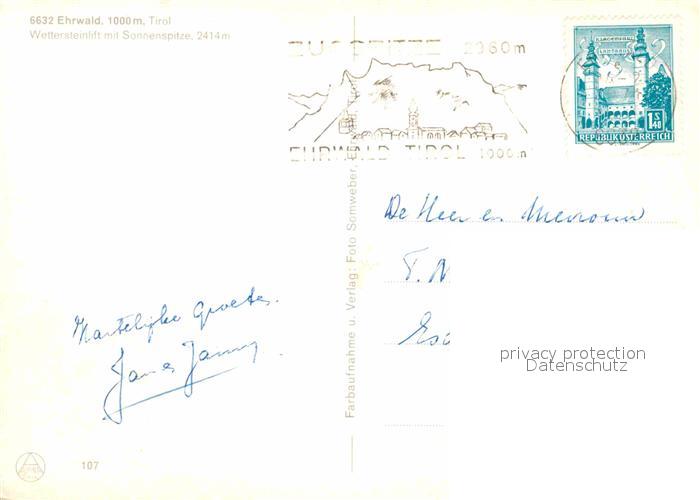 6632 Ehrwald, 1000 m, Tirol
Wettersteinlift mit Sonnenspitze, 2414 m
ZUGSPITZE 2960m
EHRWALD TIROL 1000m
KLAGENFURT
LANDHAUS
1.40 S
REPUBLIK ÖSTERREICH
De Heer en Mevrouw
T. M
Esc
privacy protection
Datenschutz
Hartelijke Groetes.
Farbaufnahme u. Verlag: Foto Somweber, Tirol
107